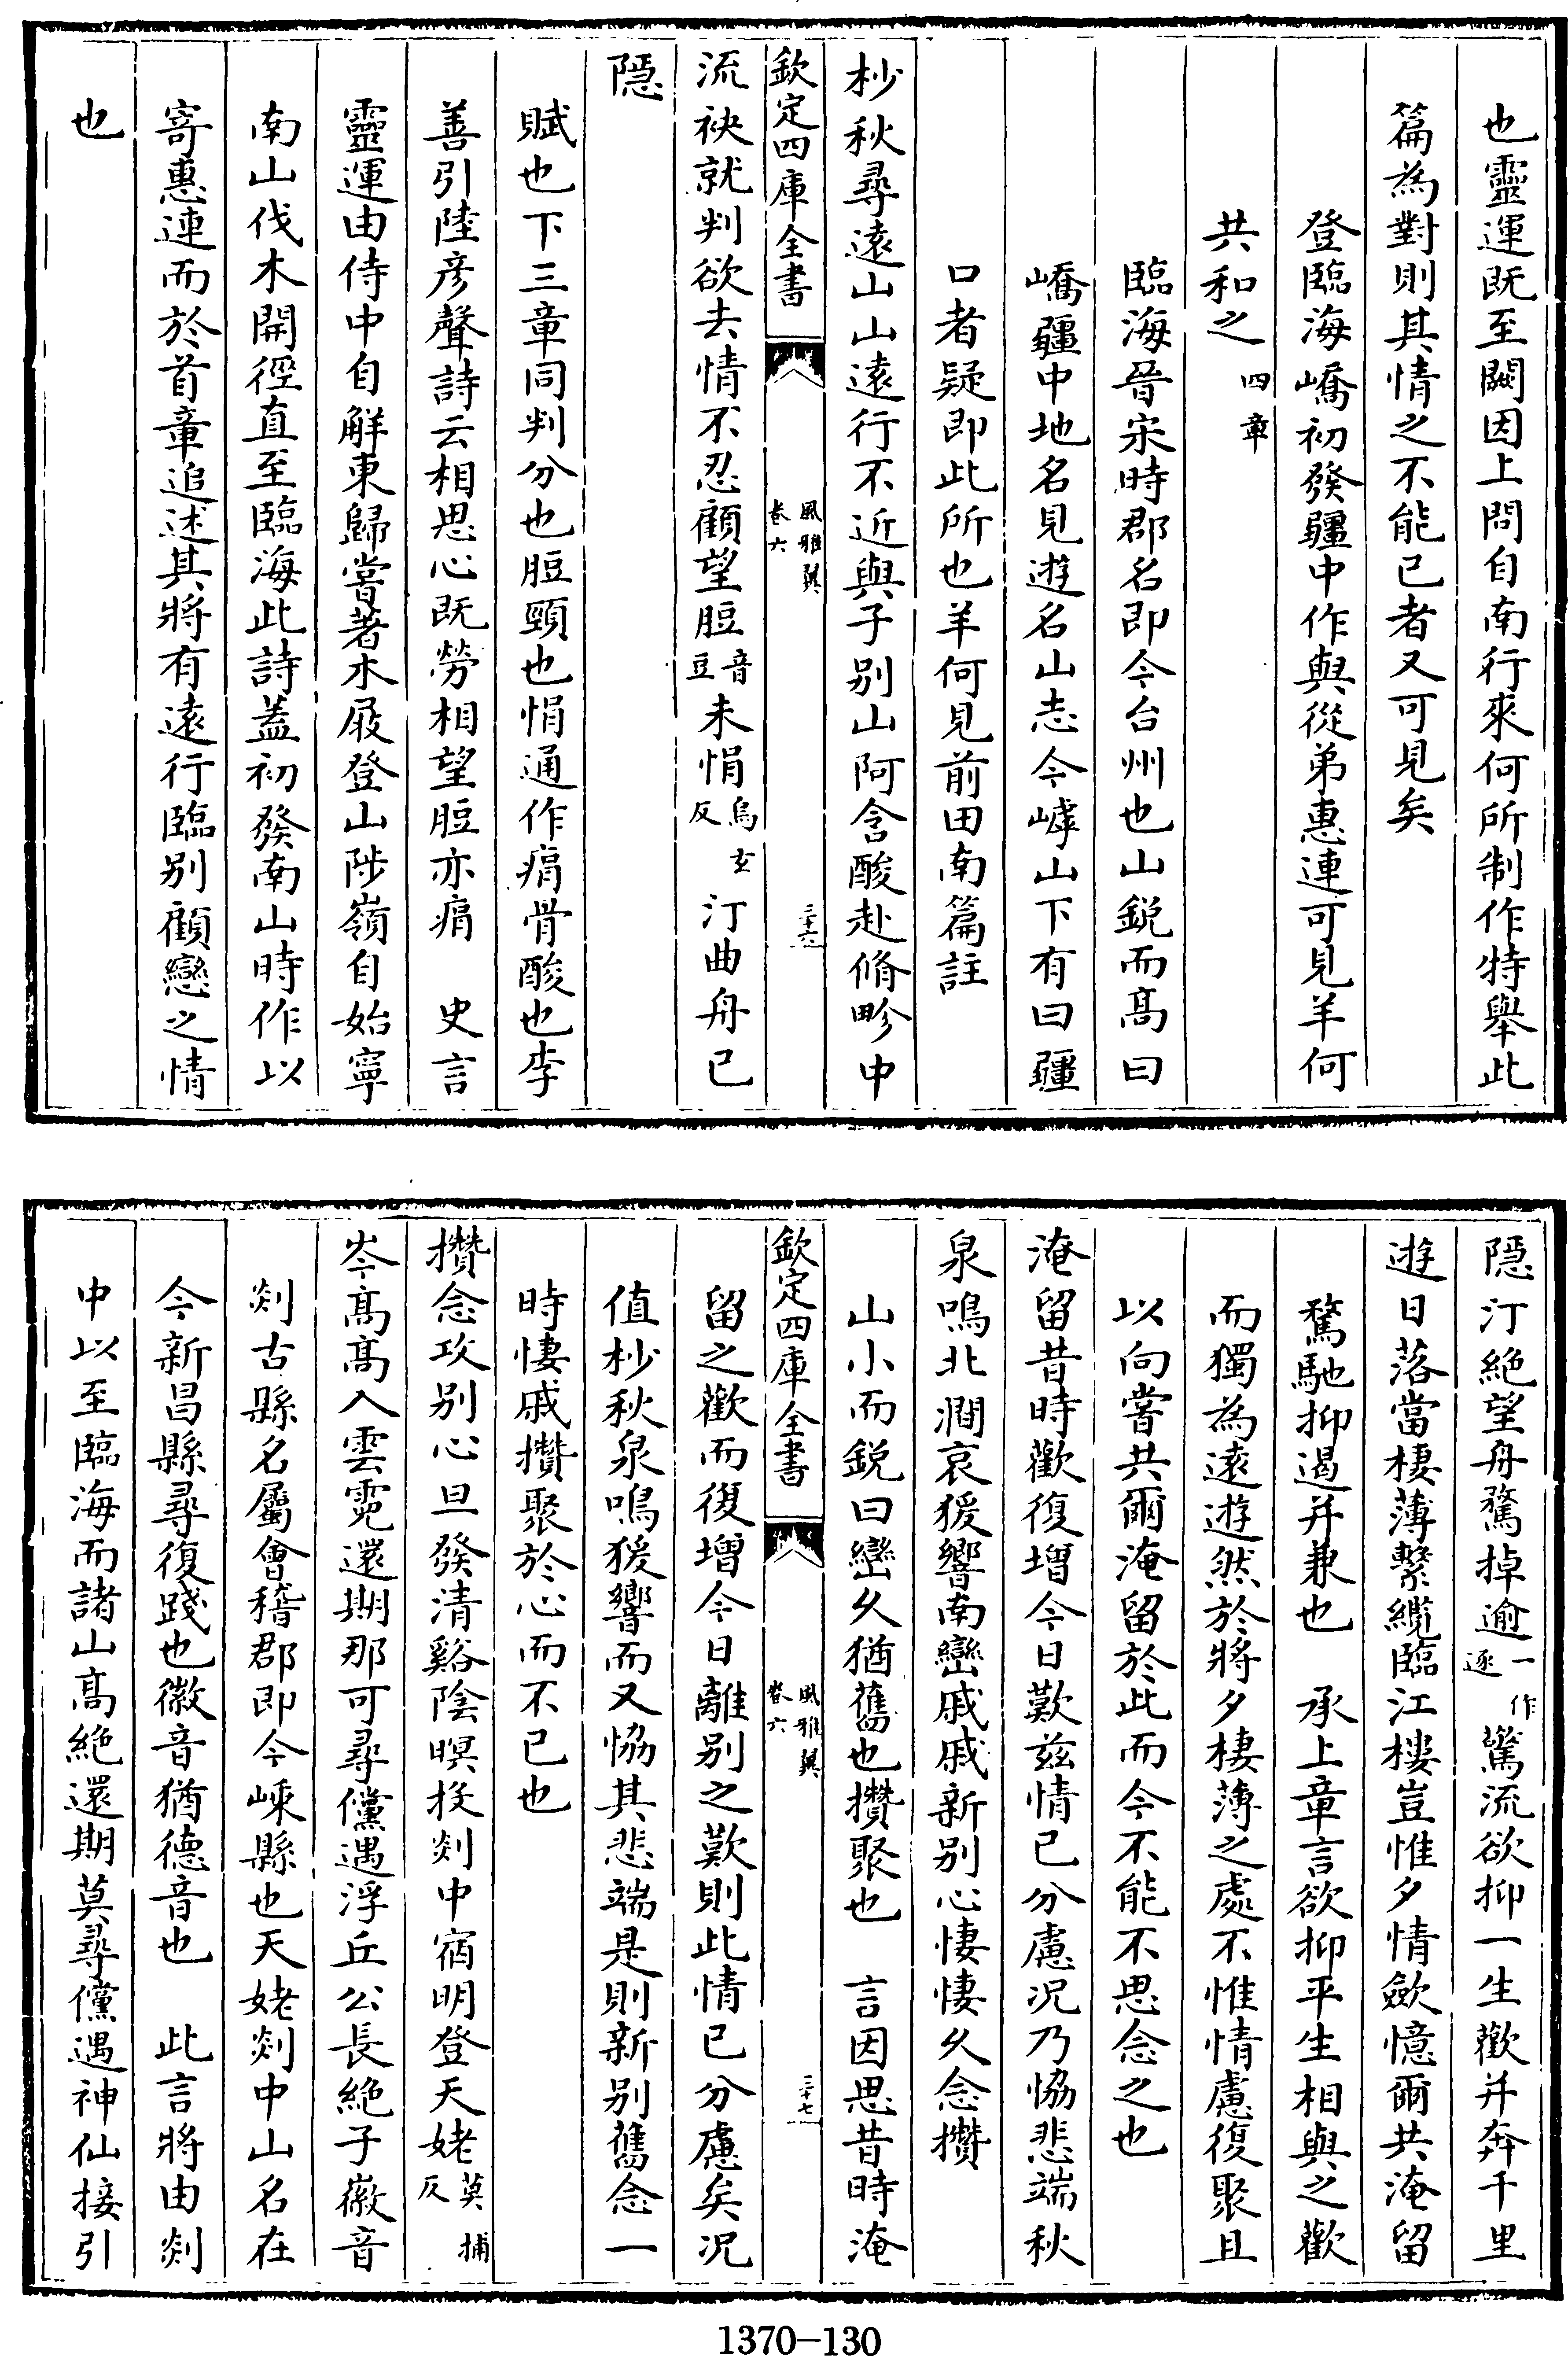 也靈運既至闕因上問自南行來何所制作特舉此
篇為對則其情之不能已者又可見矣
登臨海嶠初發疆中作與從弟惠連可見羊何
共和之四章
臨海晉宋時郡名即今台州也山鋭而髙曰
嶠疆中地名見遊名山志今嵊山下有曰疆
口者疑即此所也羊何見前田南篇註
杪秋尋逺山山逺行不近與子别山阿含酸赴脩畛中
欽定四庫全書
風雅翼
卷六
三十六
流袂就判欲去情不忍顧望脰音豆未悁烏玄反汀曲舟已
隠
賦也下三章同判分也脰頸也悁通作痟骨酸也李
善引陸彦聲詩云相思心既勞相望脰亦痟　史言
靈運由侍中自解東歸嘗著木屐登山陟嶺自始寧
南山伐木開徑直至臨海此詩蓋初發南山時作以
寄惠連而於首章追述其將有逺行臨别顧戀之情
也
隠汀絶望舟騖棹逾一作逐驚流欲抑一生歡并奔千里
遊日落當棲薄繫纜臨江樓豈惟夕情歛憶爾共淹留
騖馳抑遏并兼也　承上章言欲抑平生相與之歡
而獨為逺遊然於將夕棲薄之處不惟情慮復聚且
以向嘗共爾淹留於此而今不能不思念之也
淹留昔時歡復增今日歎兹情已分慮况乃協悲端秋
泉鳴北澗哀猨響南巒戚戚新别心悽悽久念攅
山小而鋭曰巒久猶舊也攢聚也　言因思昔時淹
欽定四庫全書
風雅翼
卷六
三十七
留之歡而復增今日離别之歎則此情已分慮矣况
值杪秋泉鳴猨響而又協其悲端是則新别舊念一
時悽戚攢聚於心而不已也
攢念攻别心旦發清谿陰暝投剡中宿明登天姥莫捕反
岑髙髙入雲霓還期那可尋儻遇浮丘公長絶子徽音
剡古縣名屬會稽郡即今嵊縣也天姥剡中山名在
今新昌縣尋復踐也徽音猶德音也　此言將由剡
中以至臨海而諸山髙絶還期莫尋儻遇神仙接引
1370-130